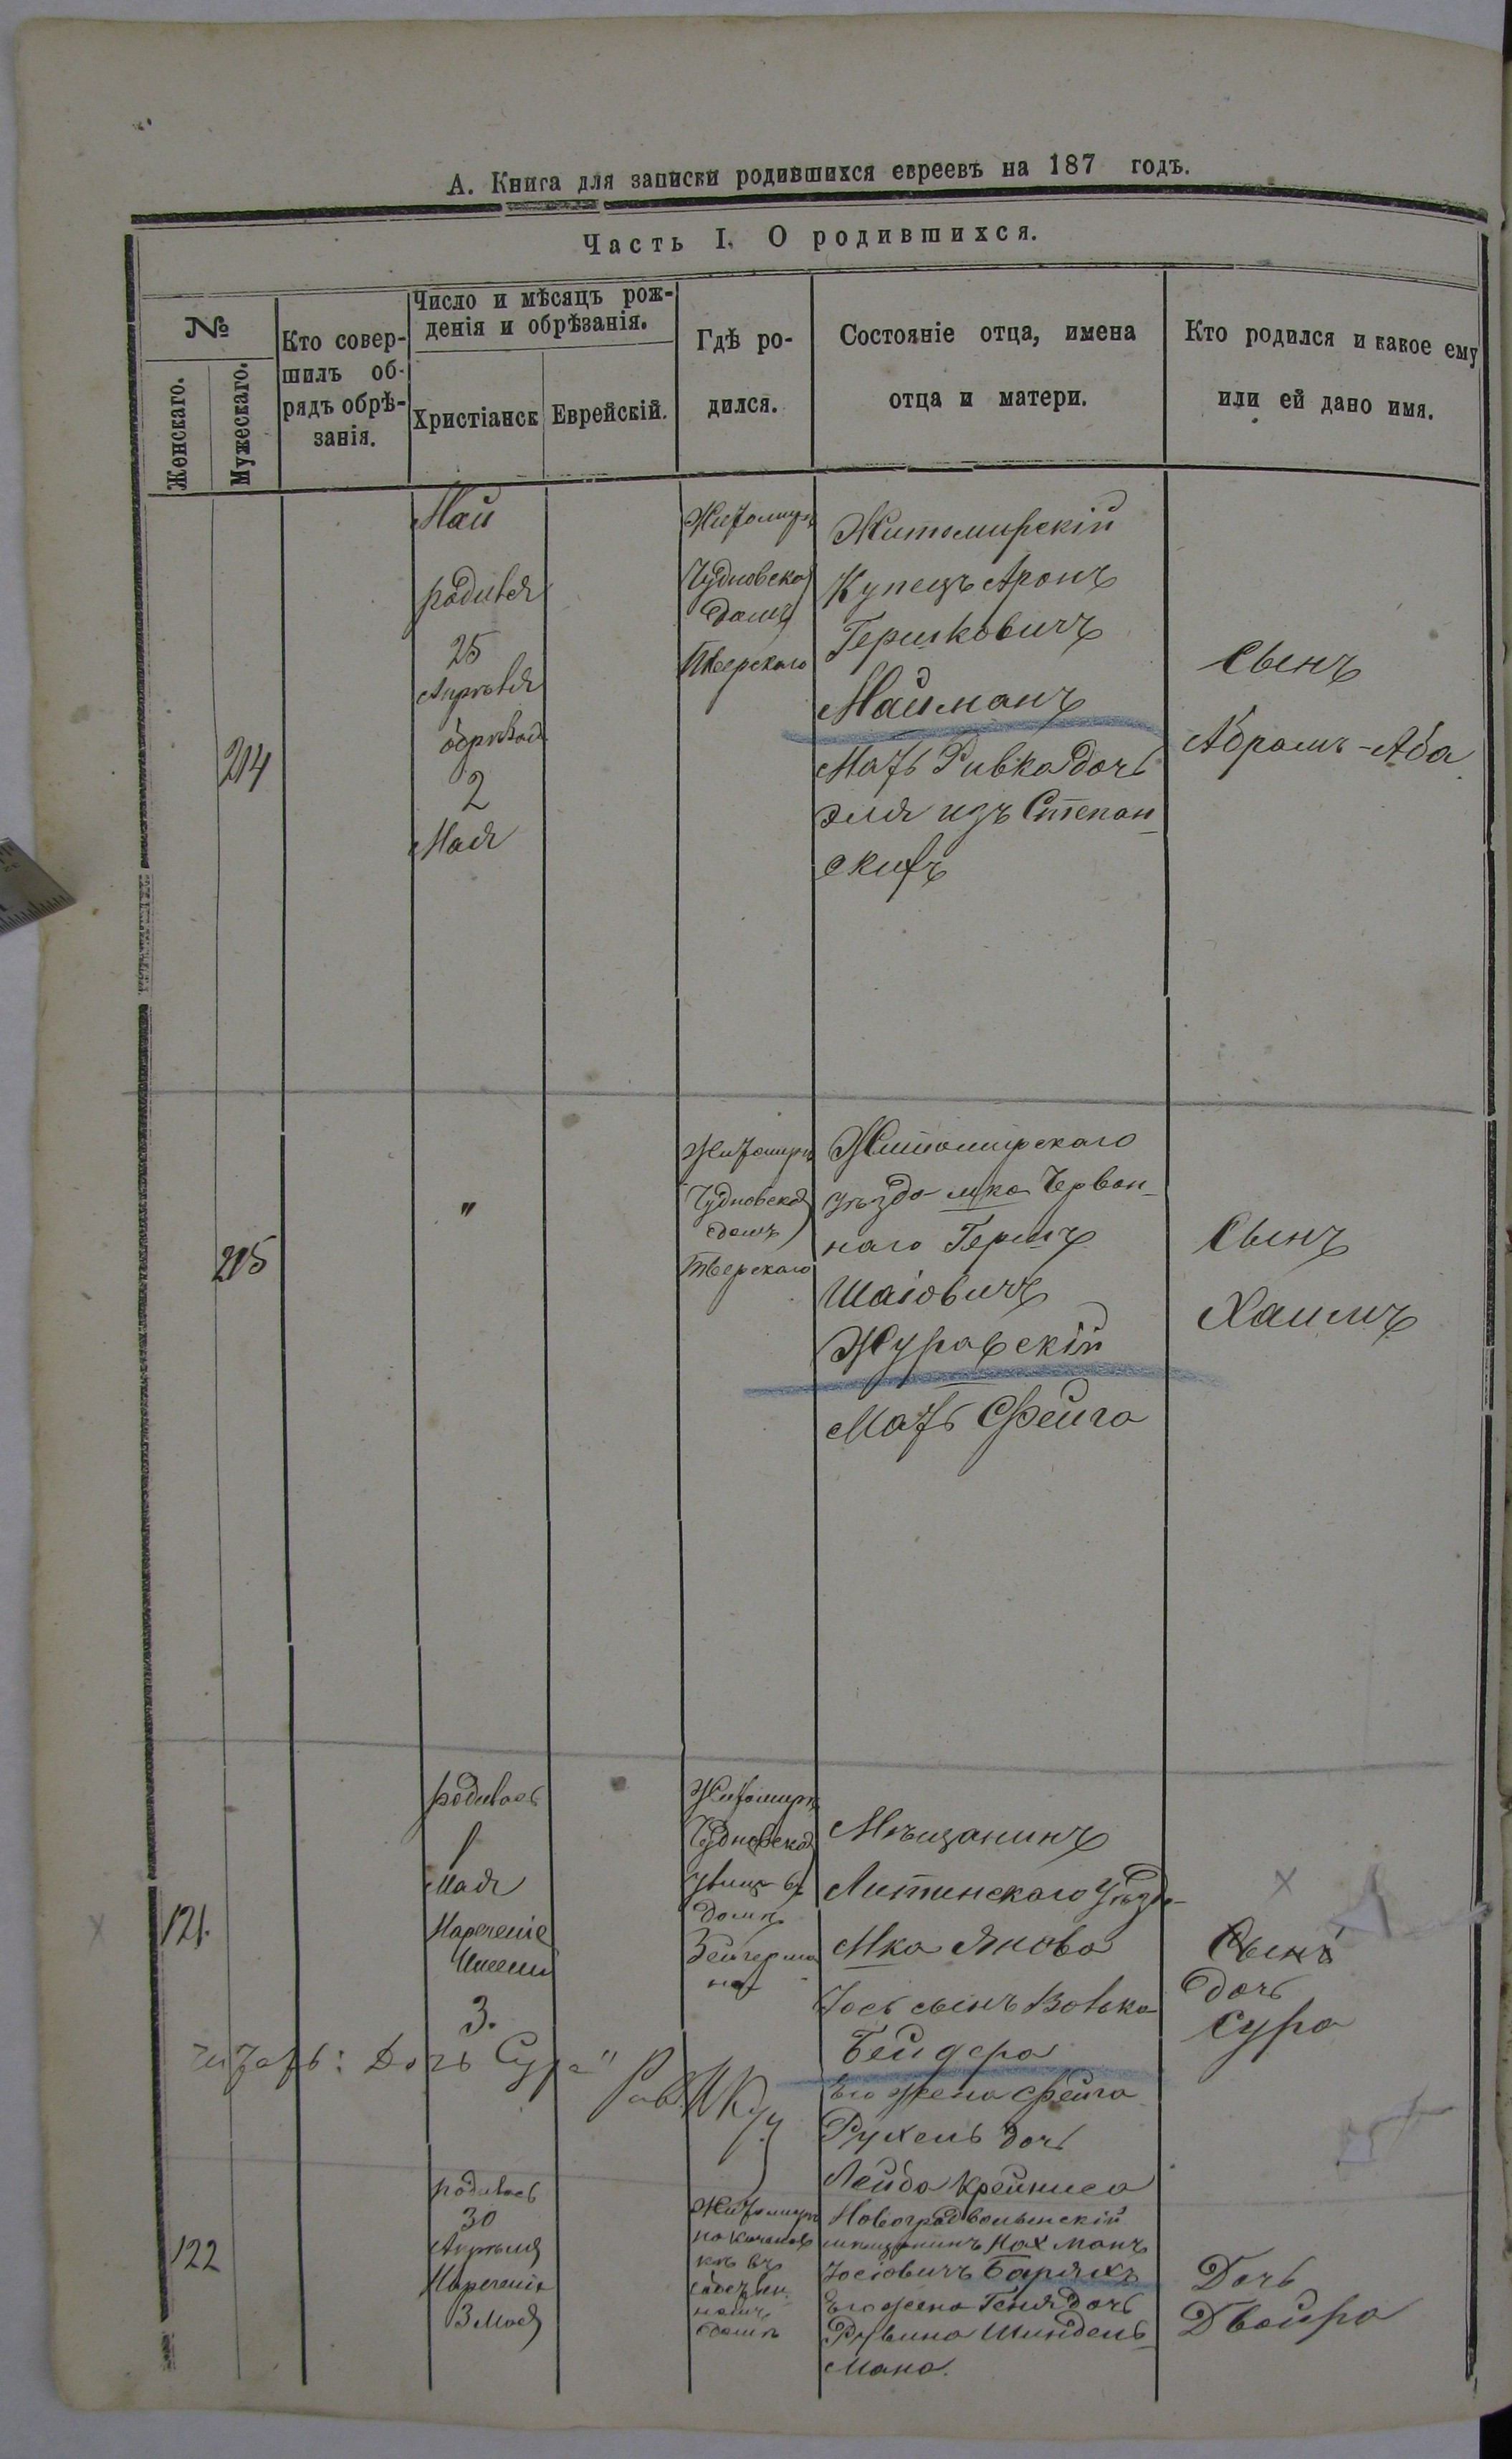 А. Книга для записки родившихся евреевъ на 187 годъ.
Часть I. О родившихся.
№
Женскаго.
Мужескаго.
Кто совер-
шилъ об-
рядъ обрѣ-
занія.
Число и мѣсяцъ рож-
денія и обрѣзанія.
Христіанск
Еврейскій.
Гдѣ ро-
дился.
Состояніе отца, имена
отца и матери.
Кто родился и какое ему
или ей дано имя.
214
Май
родился
25
Апрѣля
обрѣзан
2
Мая
Житомиръ
Чудновской
домъ
Тверскаго
Житомирскій
Купецъ Аронъ
Гершковичъ
Найманъ
Мать Ривка дочь
Эля изъ Степан-
скихъ
Сынъ
Абрамъ-Аба
215
"
Житомиръ
Чудновской
домъ
Тверскаго
Житомирскаго
уѣзда мка Червон-
наго Гершъ
Шаіовичъ
Журавскій
Мать Фейга
Сынъ
Хаимъ
121.
родилась
1
Мая
Нареченіе
Имени
3.
Житомиръ
Чудновской
улицѣ въ
домѣ
Зейгерма
на
Мѣщанинъ
Литинскаго Уѣзда
Мка Янова
Іось сынъ Волька
Бейдера
Его жена Фейга
Рухель дочь
Лейба Крейниса
Сынъ
дочь
Сура
читать: Дочь Сура"
Рав.
122
родилась
30
Апрѣля
Нареченіе
3 Мая
Житомиръ
на
въ
домѣ
Новоградволынскій
мѣщанинъ Нахманъ
Іосіовичъ Барякъ
Его жена Геня дочь
Рувина Шиндель-
мана.
Дочь
Двойра